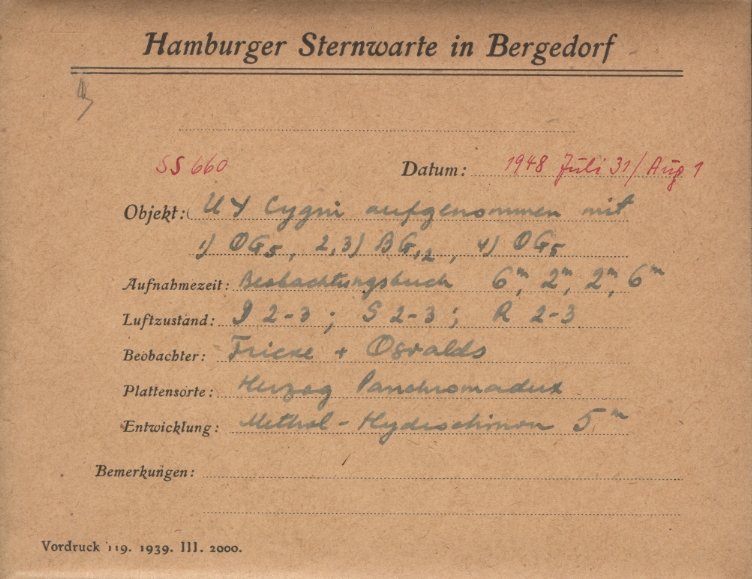 Hamburger Sternwarte in Bergedorf
SS 660 Datum: 1948 Juli 31/Aug 1
Objekt: UY Cygni aufgenommen mit
1) OG5, 2,3) BG12, 4) OG5
Aufnahmezeit: Beobachtungsbuch 6m, 2m, 2m, 6m
Luftzustand: 2-3; S 2-3; R 2-3
Beobachter: Fricke + Osvalds
Plattensorte: Herzog Panchromadux
Entwicklung: Methol-Hydrochinon 5m
Bemerkungen:
Vordruck 119. 1939. III. 2000.